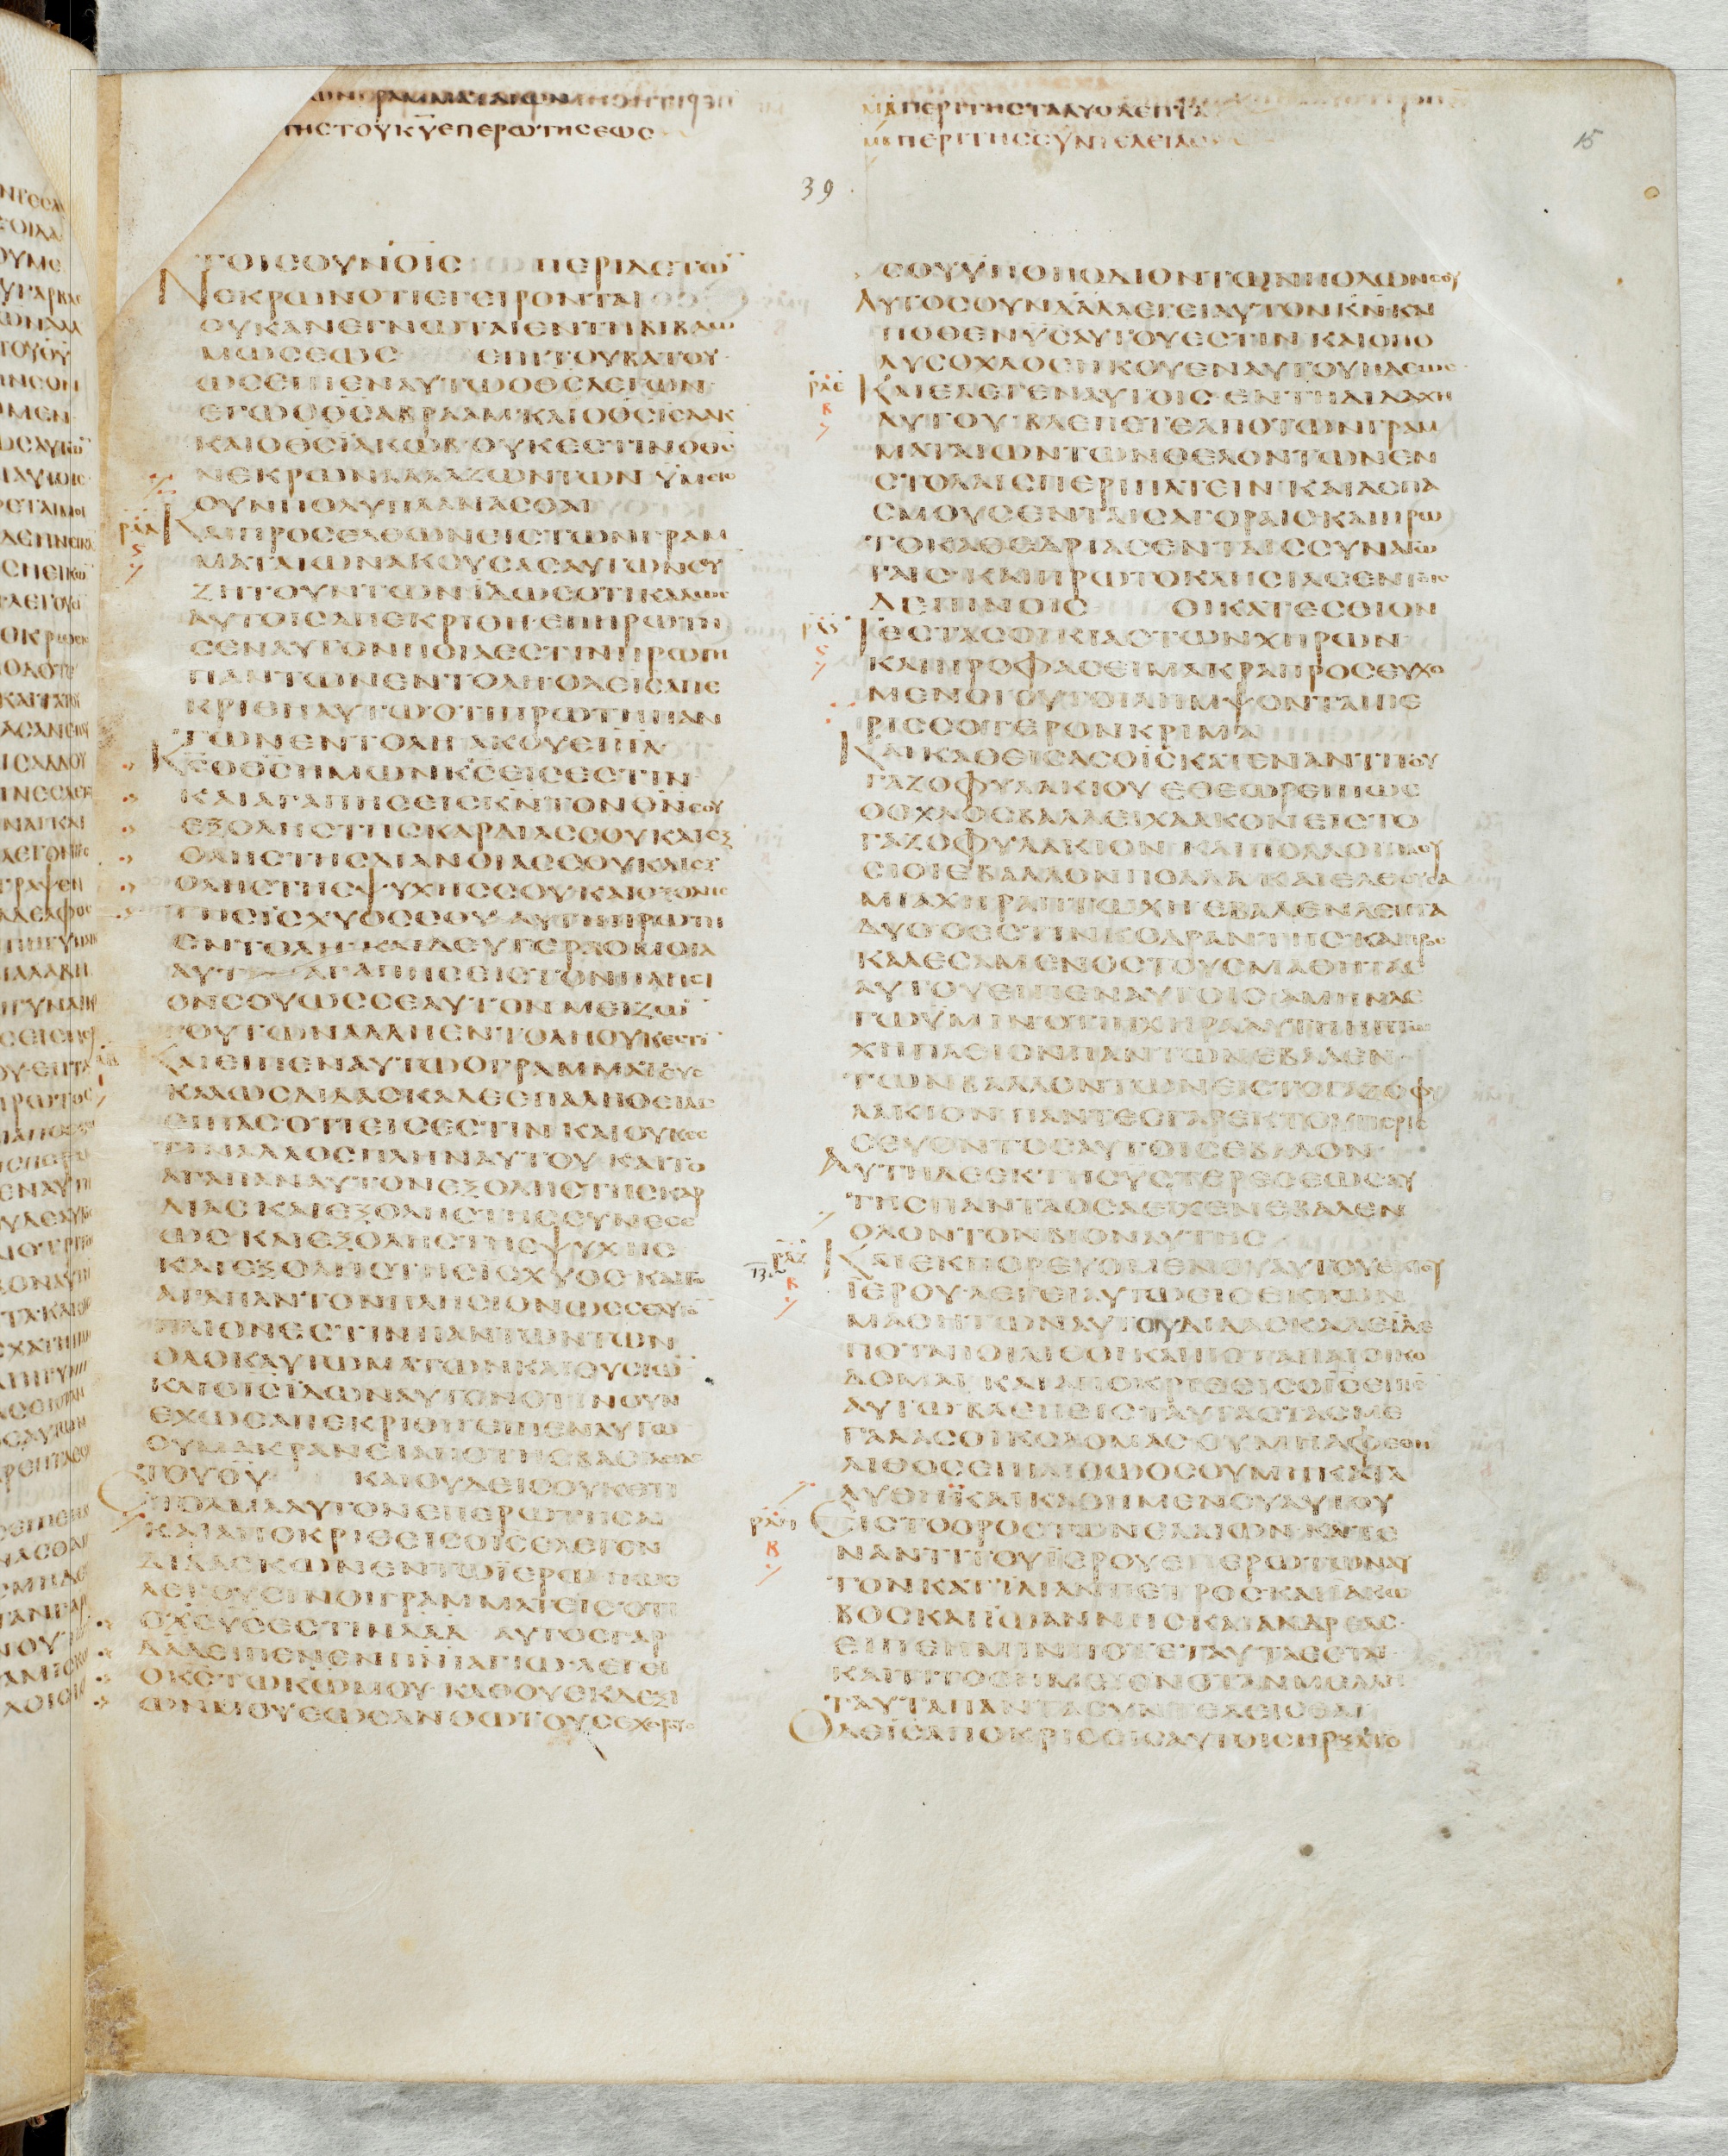 ΠΕΡΙΤΗΣΤΑΔΥΟΛΕΠΤΑ
ΤΗΣΤΟΥΚΥΕΠΕΡΩΤΗΣΕΩΣ
ΠΕΡΙΤΗΣΣΥΝΤΕΛΕΙΑΣ
15
39
ΤΟΙΣΟΥΝΟΙΣ ΠΕΡΙΔΕΤΩ
ΝΕΚΡΩΝΟΤΙΕΓΕΙΡΟΝΤΑΙ
ΟΥΚΑΝΕΓΝΩΤΑΙΕΝΤΗΒΙΒΛΩ
ΜΩΣΕΩΣ ΕΠΙΤΟΥΒΑΤΟΥ
ΩΣΕΙΠΕΝΑΥΤΩΟΘΣΛΕΓΩΝ
ΕΓΩΟΘΣΑΒΡΑΑΜ·ΚΑΙΟΘΣΙΣΑΑΚ
ΚΑΙΟΘΣΪΑΚΩΒ·ΟΥΚΕΣΤΙΝΟΘΣ
ΝΕΚΡΩΝΑΛΛΑΖΩΝΤΩΝ ΫΜΕΙΣ
ΟΥΝΠΟΛΥΠΛΑΝΑΣΘΑΙ
ΡΛΑ ΚΑΙΠΡΟΣΕΛΘΩΝΕΙΣΤΩΝΓΡΑΜ
ΜΑΤΑΙΩΝΑΚΟΥΣΑΣΑΥΤΩΝΣΥ
ΖΗΤΟΥΝΤΩΝΪΔΩΣΟΤΙΚΑΛΩΣ
ΑΥΤΟΙΣΑΠΕΚΡΙΘΗ·ΕΠΗΡΩΤΗ
ΣΕΝΑΥΤΟΝΠΟΙΑΕΣΤΙΝΠΡΩΤΗ
ΠΑΝΤΩΝΕΝΤΟΛΗ·ΟΔΕΙΣΑΠΕ
ΚΡΙΘΗΑΥΤΩΟΤΙΠΡΩΤΗΠΑΝ
ΤΩΝΕΝΤΟΛΗΑΚΟΥΕΙΗΛ
ΚΣΟΘΣΗΜΩΝΚΣΕΙΣΕΣΤΙΝ
ΚΑΙΑΓΑΠΗΣΕΙΣΚΝΤΟΝΘΝΣΟΥ
ΕΞΟΛΗΣΤΗΣΚΑΡΔΙΑΣΣΟΥΚΑΙΕΞ
ΟΛΗΣΤΗΣΔΙΑΝΟΙΑΣΣΟΥΚΑΙΕΞ
ΟΛΗΣΤΗΣΨΥΧΗΣΣΟΥΚΑΙΕΞΟΛΗΣ
ΤΗΣΪΣΧΥΟΣΣΟΥ·ΑΥΤΗΠΡΩΤΗ
ΕΝΤΟΛΗ·ΚΑΙΔΕΥΤΕΡΑΟΜΟΙΑ
ΑΥΤ ΑΓΑΠΗΣΕΙΣΤΟΝΠΛΗΣΙ
ΟΝΣΟΥΩΣΣΕΑΥΤΟΝΜΕΙΖΩ
ΤΟΥΤΩΝΑΛΛΗΕΝΤΟΛΗΟΥΚΕΣΤΙ
ΚΑΙΕΙΠΕΝΑΥΤΩΟΓΡΑΜΜΑΤΕΥΣ
ΚΑΛΩΣΔΙΔΑΣΚΑΛΕΕΠΑΛΗΘΕΙΑΣ
ΕΙΠΑΣΟΤΙΕΙΣΕΣΤΙΝ ΚΑΙΟΥΚΕΣ
ΤΙΝΑΛΛΟΣΠΛΗΝΑΥΤΟΥ ΚΑΙΤΟ
ΑΓΑΠΑΝΑΥΤΟΝΕΞΟΛΗΣΤΗΣΚΑΡ
ΔΙΑΣ ΚΑΙΕΞΟΛΗΣΤΗΣΣΥΝΕΣΕ
ΩΣ ΚΑΙΕΞΟΛΗΣΤΗΣΨΥΧΗΣ
ΚΑΙΕΞΟΛΗΣΤΗΣΪΣΧΥΟΣ ΚΑΙΤΟ
ΑΓΑΠΑΝΤΟΝΠΛΗΣΙΟΝΩΣΣΕΑΥΤΟ
ΠΛΙΟΝΕΣΤΙΝΠΑΝΤΩΝΤΩΝ
ΟΛΟΚΑΥΤΩΜΑΤΩΝΚΑΙΘΥΣΙΩ
ΚΑΙΟΙΣΪΔΩΝΑΥΤΟΝΟΤΙΝΟΥΝ
ΕΧΩΣΑΠΕΚΡΙΘΗΕΙΠΕΝΑΥΤΩ
ΟΥΜΑΚΡΑΝΕΙΑΠΟΤΗΣΒΑΣΙΛΕΙΑΣ
ΤΟΥΘΥ ΚΑΙΟΥΔΕΙΣΟΥΚΕΤΙ
ΕΤΟΛΜΑΑΥΤΟΝΕΠΕΡΩΤΗΣΑΙ
ΚΑΙΑΠΟΚΡΙΘΕΙΣΟΙΣΕΛΕΓΕΝ
ΔΙΔΑΣΚΩΝΕΝΤΩΪΕΡΩ·ΠΩΣ
ΛΕΓΟΥΣΙΝΟΙΓΡΑΜΜΑΤΕΙΣΟΤΙ
ΟΧΣΥΣΕΣΤΙΝΔΑΔ ΑΥΤΟΣΓΑΡ
ΔΑΔΕΙΠΕΝΕΝΠΝΙΑΓΙΩ·ΛΕΓΕΙ
ΟΚΣΤΩΚΩΜΟΥ·ΚΑΘΟΥΕΚΔΕΞΙ
ΩΝΜΟΥΕΩΣΑΝΘΩΤΟΥΣΕΧΘΡΟΥΣ
ΣΟΥΫΠΟΠΟΔΙΟΝΤΩΝΠΟΔΩΝΣΟΥ
ΑΥΤΟΣΟΥΝΔΑΔΛΕΓΕΙΑΥΤΟΝΚΝ·ΚΑΙ
ΠΟΘΕΝΥΣΑΥΤΟΥΕΣΤΙΝ ΚΑΙΟΠΟ
ΛΥΣΟΧΛΟΣΗΚΟΥΕΝΑΥΤΟΥΗΔΕΩΣ
ΡΛΕ ΚΑΙΕΛΕΓΕΝΑΥΤΟΙΣ·ΕΝΤΗΔΙΔΑΧΗ
ΑΥΤΟΥ·ΒΛΕΠΕΤΕΑΠΟΤΩΝΓΡΑΜ
ΜΑΤΑΙΩΝΤΩΝΘΕΛΟΝΤΩΝΕΝ
ΣΤΟΛΑΙΣΠΕΡΙΠΑΤΕΙΝ·ΚΑΙΑΣΠΑ
ΣΜΟΥΣΕΝΤΑΙΣΑΓΟΡΑΙΣΚΑΙΠΡΩ
ΤΟΚΑΘΕΔΡΙΑΣΕΝΤΑΙΣΣΥΝΑΓΩ
ΓΑΙΣ·ΚΑΙΠΡΩΤΟΚΛΗΣΙΑΣΕΝΤΟΙΣ
ΔΕΙΠΝΟΙΣ ΟΙΚΑΤΕΣΘΙΟΝ
ΡΛϚ ΤΕΣΤΑΣΟΙΚΙΑΣΤΩΝΧΗΡΩΝ
ΚΑΙΠΡΟΦΑΣΕΙΜΑΚΡΑΠΡΟΣΕΥΧΟ
ΜΕΝΟΙΟΥΤΟΙΛΗΜΨΟΝΤΑΙΠΕ
ΡΙΣΣΟΤΕΡΟΝΚΡΙΜΑ
ΚΑΙΚΑΘΕΙΣΑΣΟΙΣΚΑΤΕΝΑΝΤΙΤΟΥ
ΓΑΖΟΦΥΛΑΚΙΟΥ ΕΘΕΩΡΕΙΠΩΣ
ΟΟΧΛΟΣΒΑΛΛΕΙΧΑΛΚΟΝΕΙΣΤΟ
ΓΑΖΟΦΥΛΑΚΙΟΝ ΚΑΙΠΟΛΛΟΙΠΛΟΥ
ΣΙΟΙΕΒΑΛΛΟΝΠΟΛΛΑ·ΚΑΙΕΛΘΟΥΣΑ
ΜΙΑΧΗΡΑΠΤΩΧΗΕΒΑΛΕΝΛΕΠΤΑ
ΔΥΟΟΕΣΤΙΝΚΟΔΡΑΝΤΗΣ·ΚΑΙΠΡΟΣ
ΚΑΛΕΣΑΜΕΝΟΣΤΟΥΣΜΑΘΗΤΑΣ
ΑΥΤΟΥΕΙΠΕΝΑΥΤΟΙΣ·ΑΜΗΝΛΕ
ΓΩΫΜΙΝΟΤΙΗΧΗΡΑΑΥΤΗΗΠΤΩ
ΧΗΠΛΕΙΟΝΠΑΝΤΩΝΕΒΑΛΕΝ
ΤΩΝΒΑΛΛΟΝΤΩΝΕΙΣΤΟΓΑΖΟΦΥ
ΛΑΚΙΟΝ·ΠΑΝΤΕΣΓΑΡΕΚΤΟΥΠΕΡΙΣ
ΣΕΥΟΝΤΟΣΑΥΤΟΙΣΕΒΑΛΟΝ
ΑΥΤΗΔΕΕΚΤΗΣΫΣΤΕΡΕΣΕΩΣΑΥ
ΤΗΣΠΑΝΤΑΟΣΑΕΙΧΕΝΕΒΑΛΕΝ
ΟΛΟΝΤΟΝΒΙΟΝΑΥΤΗΣ
13. ΡΛΖ ΚΑΙΕΚΠΟΡΕΥΟΜΕΝΟΥΑΥΤΟΥΕΚΤΟΥ
ΪΕΡΟΥ·ΛΕΓΕΙΑΥΤΩΕΙΣΕΚΤΩΝ
ΜΑΘΗΤΩΝΑΥΤΟΥΔΙΔΑΣΚΑΛΕΪΔΕ
ΠΟΤΑΠΟΙΛΙΘΟΙΚΑΙΠΟΤΑΠΑΙΟΙΚΟ
ΔΟΜΑΙ ΚΑΙΑΠΟΚΡΙΘΕΙΣΟΙΣΕΙΠΕ
ΑΥΤΩ·ΒΛΕΠΕΙΣΤΑΥΤΑΣΤΑΣΜΕ
ΓΑΛΑΣΟΙΚΟΔΟΜΑΣ·ΟΥΜΗΑΦΕΘΗ
ΛΙΘΟΣΕΠΙΛΙΘΩΟΣΟΥΜΗΚΑΤΑ
ΛΥΘΗΪΚΑΙΚΑΘΗΜΕΝΟΥΑΥΤΟΥ
ΡΛΗ ΕΙΣΤΟΟΡΟΣΤΩΝΕΛΑΙΩΝ·ΚΑΤΕ
ΝΑΝΤΙΤΟΥΪΕΡΟΥΕΠΕΡΩΤΩΝΑΥ
ΤΟΝΚΑΤΪΔΙΑΝΠΕΤΡΟΣ·ΚΑΙΪΑΚΩ
ΒΟΣΚΑΙΪΩΑΝΝΗΣΚΑΙΑΝΔΡΕΑΣ·
ΕΙΠΕΗΜΙΝΠΟΤΕΤΑΥΤΑΕΣΤΑΙ
ΚΑΙΤΙΤΟΣΗΜΕΙΟΝΟΤΑΝΜΕΛΛΗ
ΤΑΥΤΑΠΑΝΤΑΣΥΝΤΕΛΕΙΣΘΑΙ
ΟΔΕΙΣΑΠΟΚΡΙΘΕΙΣΑΥΤΟΙΣΗΡΞΑΤΟ